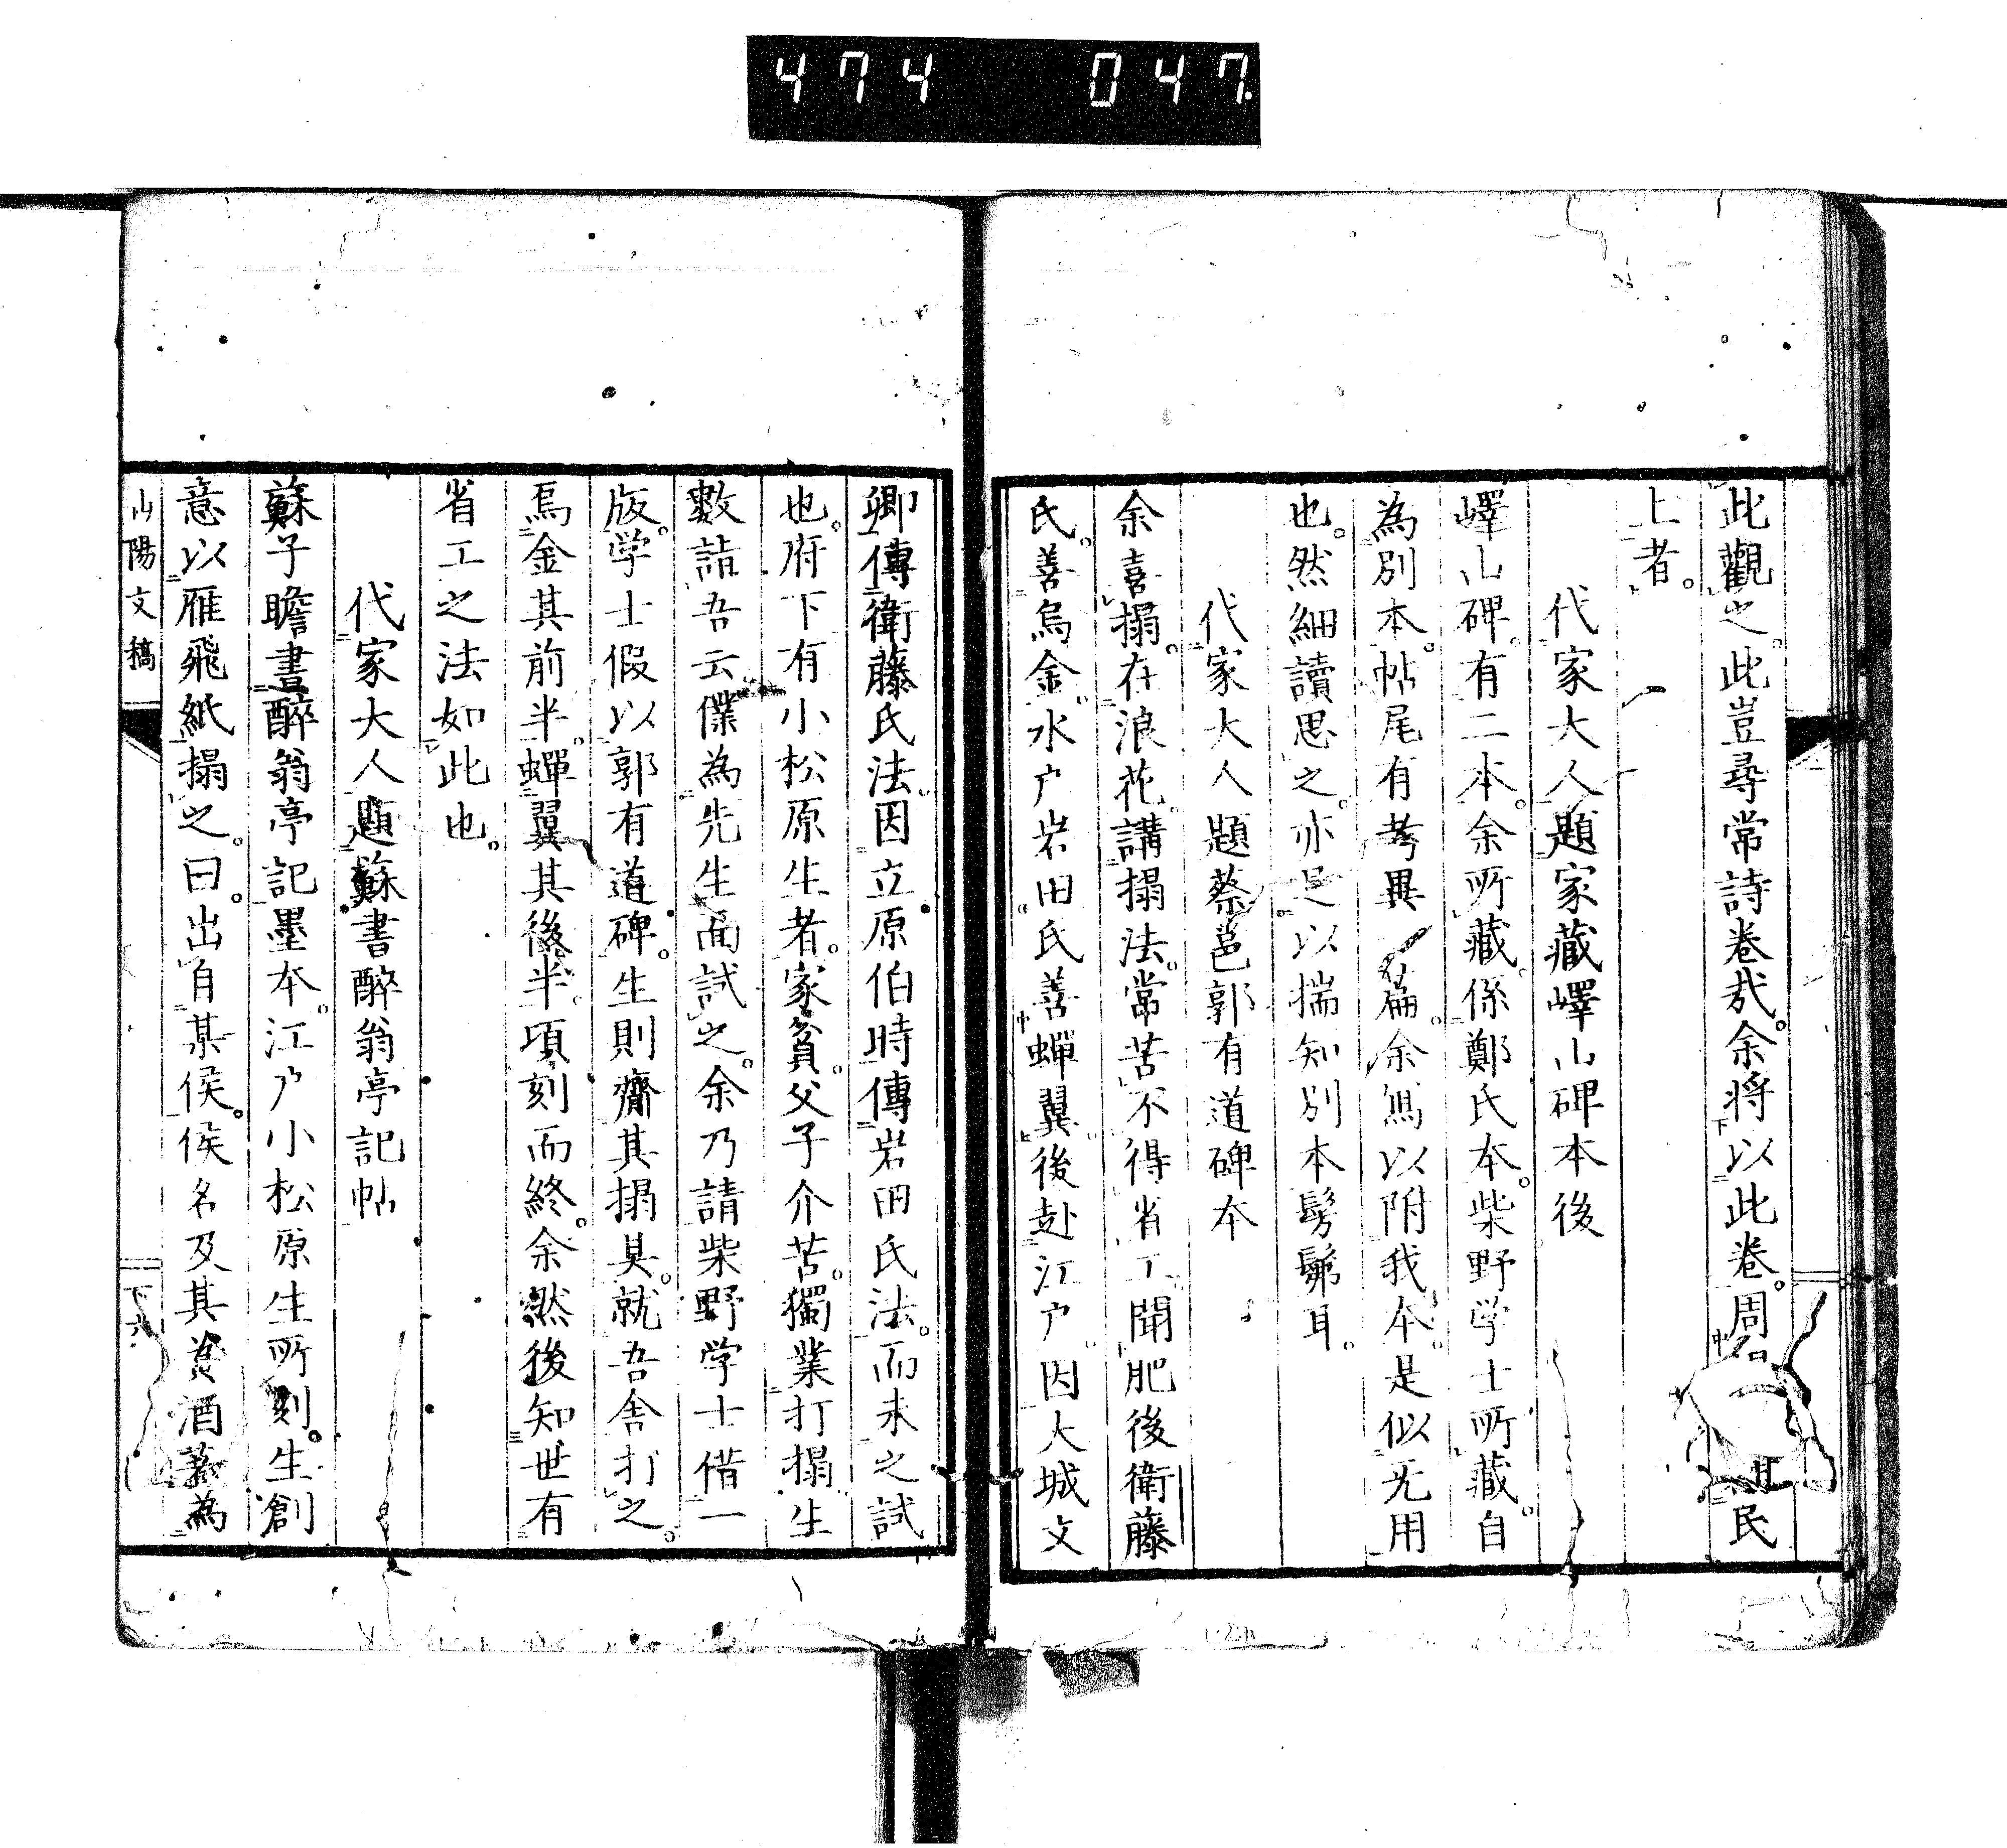 474 047.
此觀之。此豈尋常詩卷哉。余將以此卷。周 其民
上者。
代家大人題家藏嶧山碑本後
嶧山碑。有二本。余所藏。係鄭氏本。柴野学士所藏。自
為別本。帖尾有考異一篇。余寫以附我本。是似无用
也。然細讀思之。亦足以揣知別本髣髴耳。
代家大人題蔡邕郭有道碑本
余喜搨。在浪花。講搨法。常苦不得省工。聞肥後衛藤
氏。善烏金。水户岩田氏善蟬翼。後赴江户。因大城文
卿傳衛藤氏法。因立原伯時傳岩田氏法。而未之試
也。府下有小松原生者。家貧。父子介苦。獨業打搨。生
數詣吾云。僕為先生面試之。余乃請柴野学士借一
版。学士假以郭有道碑。生則齎其搨具。就吾舎打之。
烏金其前半。蟬翼其後半。頃刻而終。余然後知世有
省工之法如此也。
代家大人題蘇書醉翁亭記帖
蘇子瞻書醉翁亭記墨本。江户小松原生所刻。生創
意以雁飛紙搨之。曰。出自某侯。侯名及其 酒 為
山陽文稿 下 六